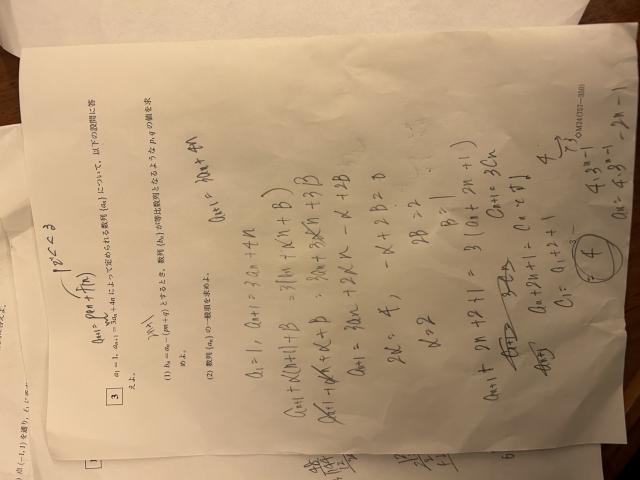 12<<3
an+1 = pan + f(n)
3 a₁ = 1, aₙ₊₁ = 3aₙ + 4n によって定められる数列 {aₙ} について, 以下の設問に答
えよ.
(1) bₙ = aₙ − (pn + q) とするとき, 数列 {bₙ} が等比数列となるような p, q の値を求
めよ.
(2) 数列 {aₙ} の一般項を求めよ.
an+1 = 3an + 4n
a₁ = 1, an+1 = 3an + 4n
an+1 + α(n+1) + β = 3(an + αn + β)
an+1 + αn + α + β = 3an + 3αn + 3β
an+1 = 3an + 2αn − α + 2β
2α = 4, −α + 2β = 0
α = 2 2β = 2
β = 1
an+1 + 2n + 2 + 1 = 3(an + 2n + 1)
Cn+1 = 3Cn
an + 2n + 1 = Cn とする
C₁ = a₁ + 2 + 1
= 4
4・3ⁿ⁻¹
an = 4・3ⁿ⁻¹ − 2n − 1
◇M24(757—350)
点(−1, 1) を通り,